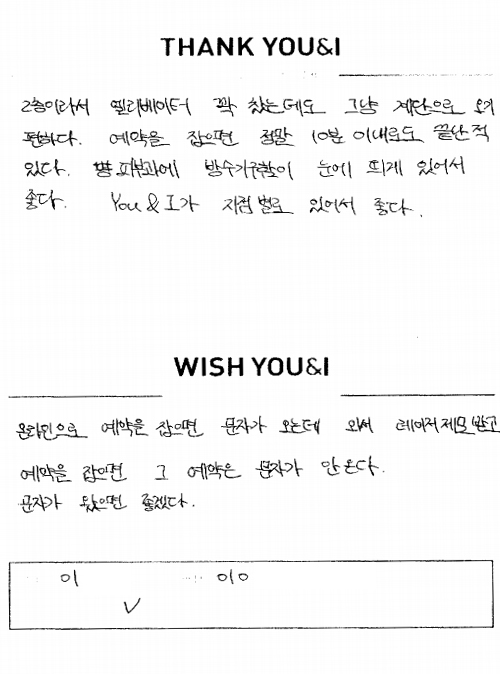 THANK YOU&I
2층이라서 엘리베이터 꽉 찼는데도 그냥 계단으로 오기
편하다. 예약을 잡으면 정말 10분 이내로도 끝난 적
있다. 피부과에 눈에 띄게 있어서
좋다. You & I가 지점 별로 있어서 좋다.
WISH YOU&I
온라인으로 예약을 잡으면 문자가 오는데 와서 레이저제모받고
예약을 잡으면 그 예약은 문자가 안 온다.
문자가 왔으면 좋겠다.